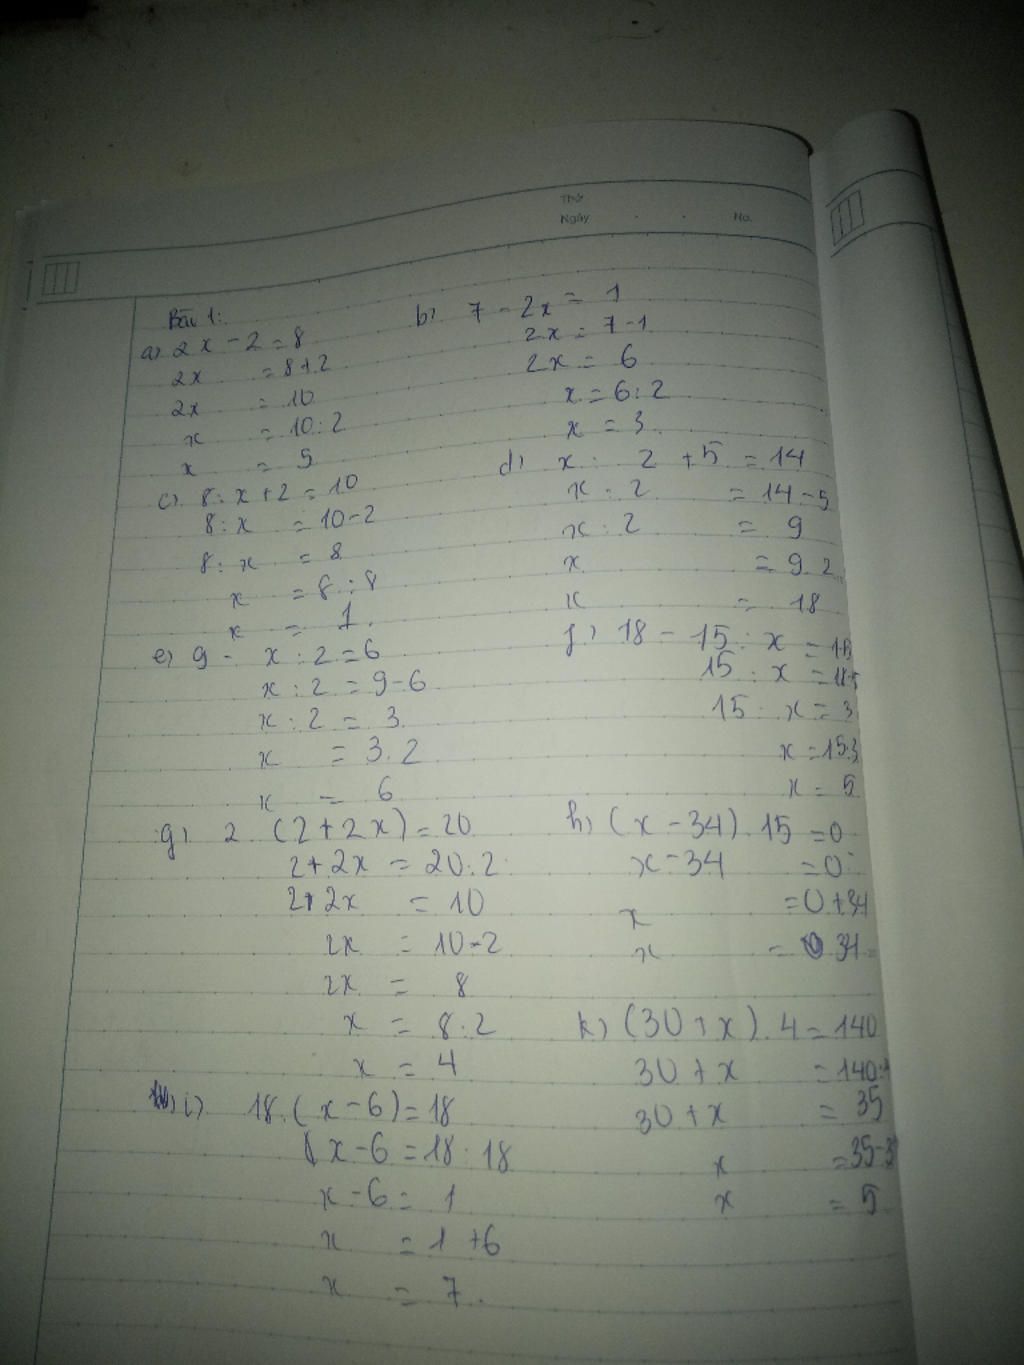 Thứ
Ngày . . No.
Bài 1:
a) 2x - 2 = 8
2x = 8+2
2x = 10
x = 10:2
x = 5
b) 7 - 2x = 1
2x = 7-1
2x = 6
x = 6:2
x = 3.
c) 8:x+2 = 10
8:x = 10-2
8:x = 8
x = 8:8
x = 1.
d) x : 2 + 5 = 14
x : 2 = 14-5
x : 2 = 9
x = 9.2
x = 18
e) 9 - x:2 = 6
x:2 = 9-6
x:2 = 3.
x = 3.2
x = 6
f) 18 - 15 : x =
15 : x =
15 : x = 3
x = 15:3
x = 5
g) 2.(2+2x) = 20
2+2x = 20:2
2+2x = 10
2x = 10-2
2x = 8
x = 8:2
x = 4
h) (x-34).15 = 0
x-34 = 0
x = 0+34
x = 34
i) 18.(x-6) = 18
x-6 = 18:18
x-6 = 1
x = 1+6
x = 7.
k) (30+x).4 = 140
30+x = 140:
30+x = 35
x = 35-3
x = 5